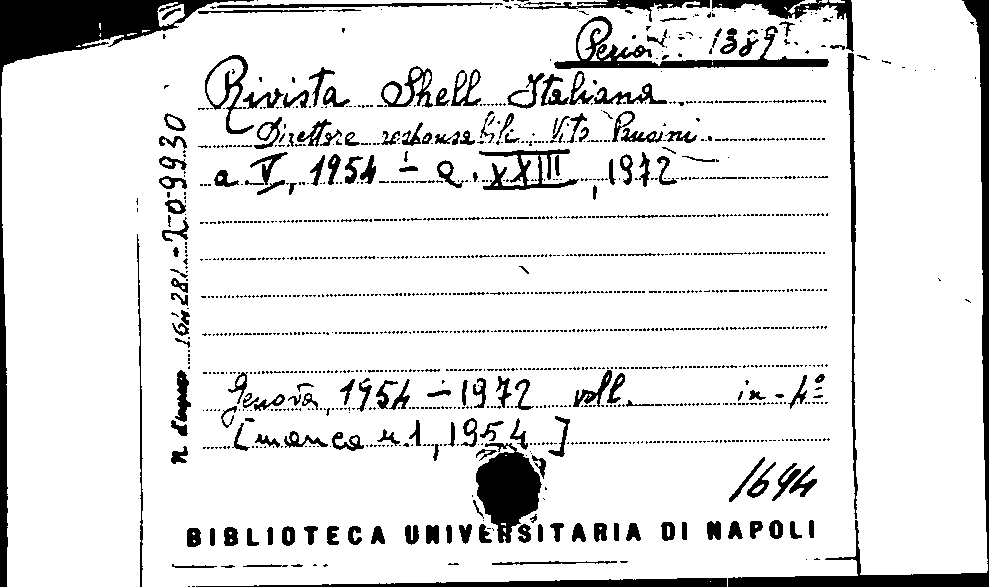 Period. 1389
Rivista Shell Italiana.
Direttore responsabile: Vito Pansini.
a. V, 1954 - a. XXIII, 1972
n. d'ingresso 164281 - 209930
Genova, 1954 - 1972 voll. in-4º
[manca n. 1, 1954]
1694
BIBLIOTECA UNIVERSITARIA DI NAPOLI